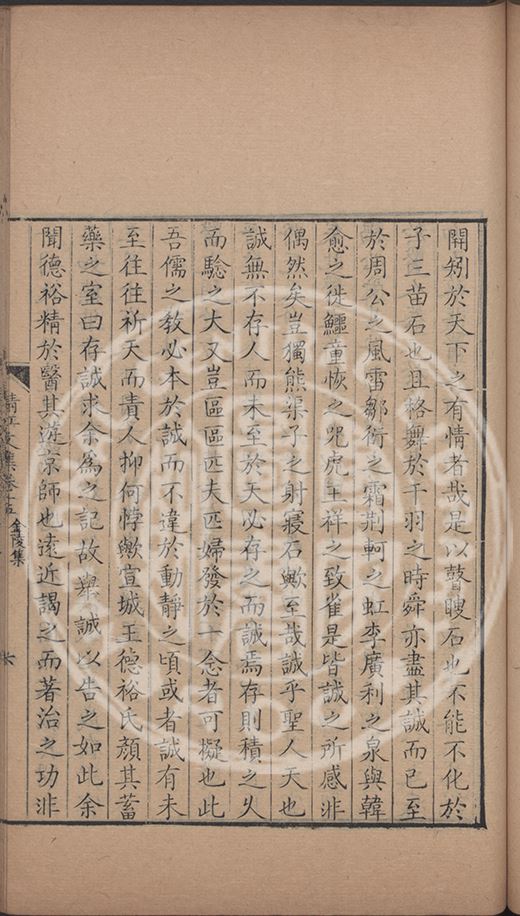 開矧於天下之有情者哉是以瞽瞍石也不能不化於
子三苗石也且格舞於干羽之時舜亦盡其誠而已至
於周公之風雷鄒衍之霜荆軻之虹李廣利之泉與韓
愈之徙鱷童恢之咒虎王祥之致雀是皆誠之所感非
偶然矣豈獨熊渠子之射寢石歟至哉誠乎聖人天也
誠無不存人而未至於天必存之而誠焉存則積之久
而騐之大又豈區區匹夫匹婦發於一念者可擬也此
吾儒之敎必本於誠而不違於動靜之頃或者誠有未
至往往祈天而責人抑何悖歟宣城王德裕氏顏其蓄
藥之室曰存誠求余爲之記故舉誠以告之如此余
聞德裕精於醫其遊京師也遠近謁之而著治之功非
清江文集卷十五 金陵集